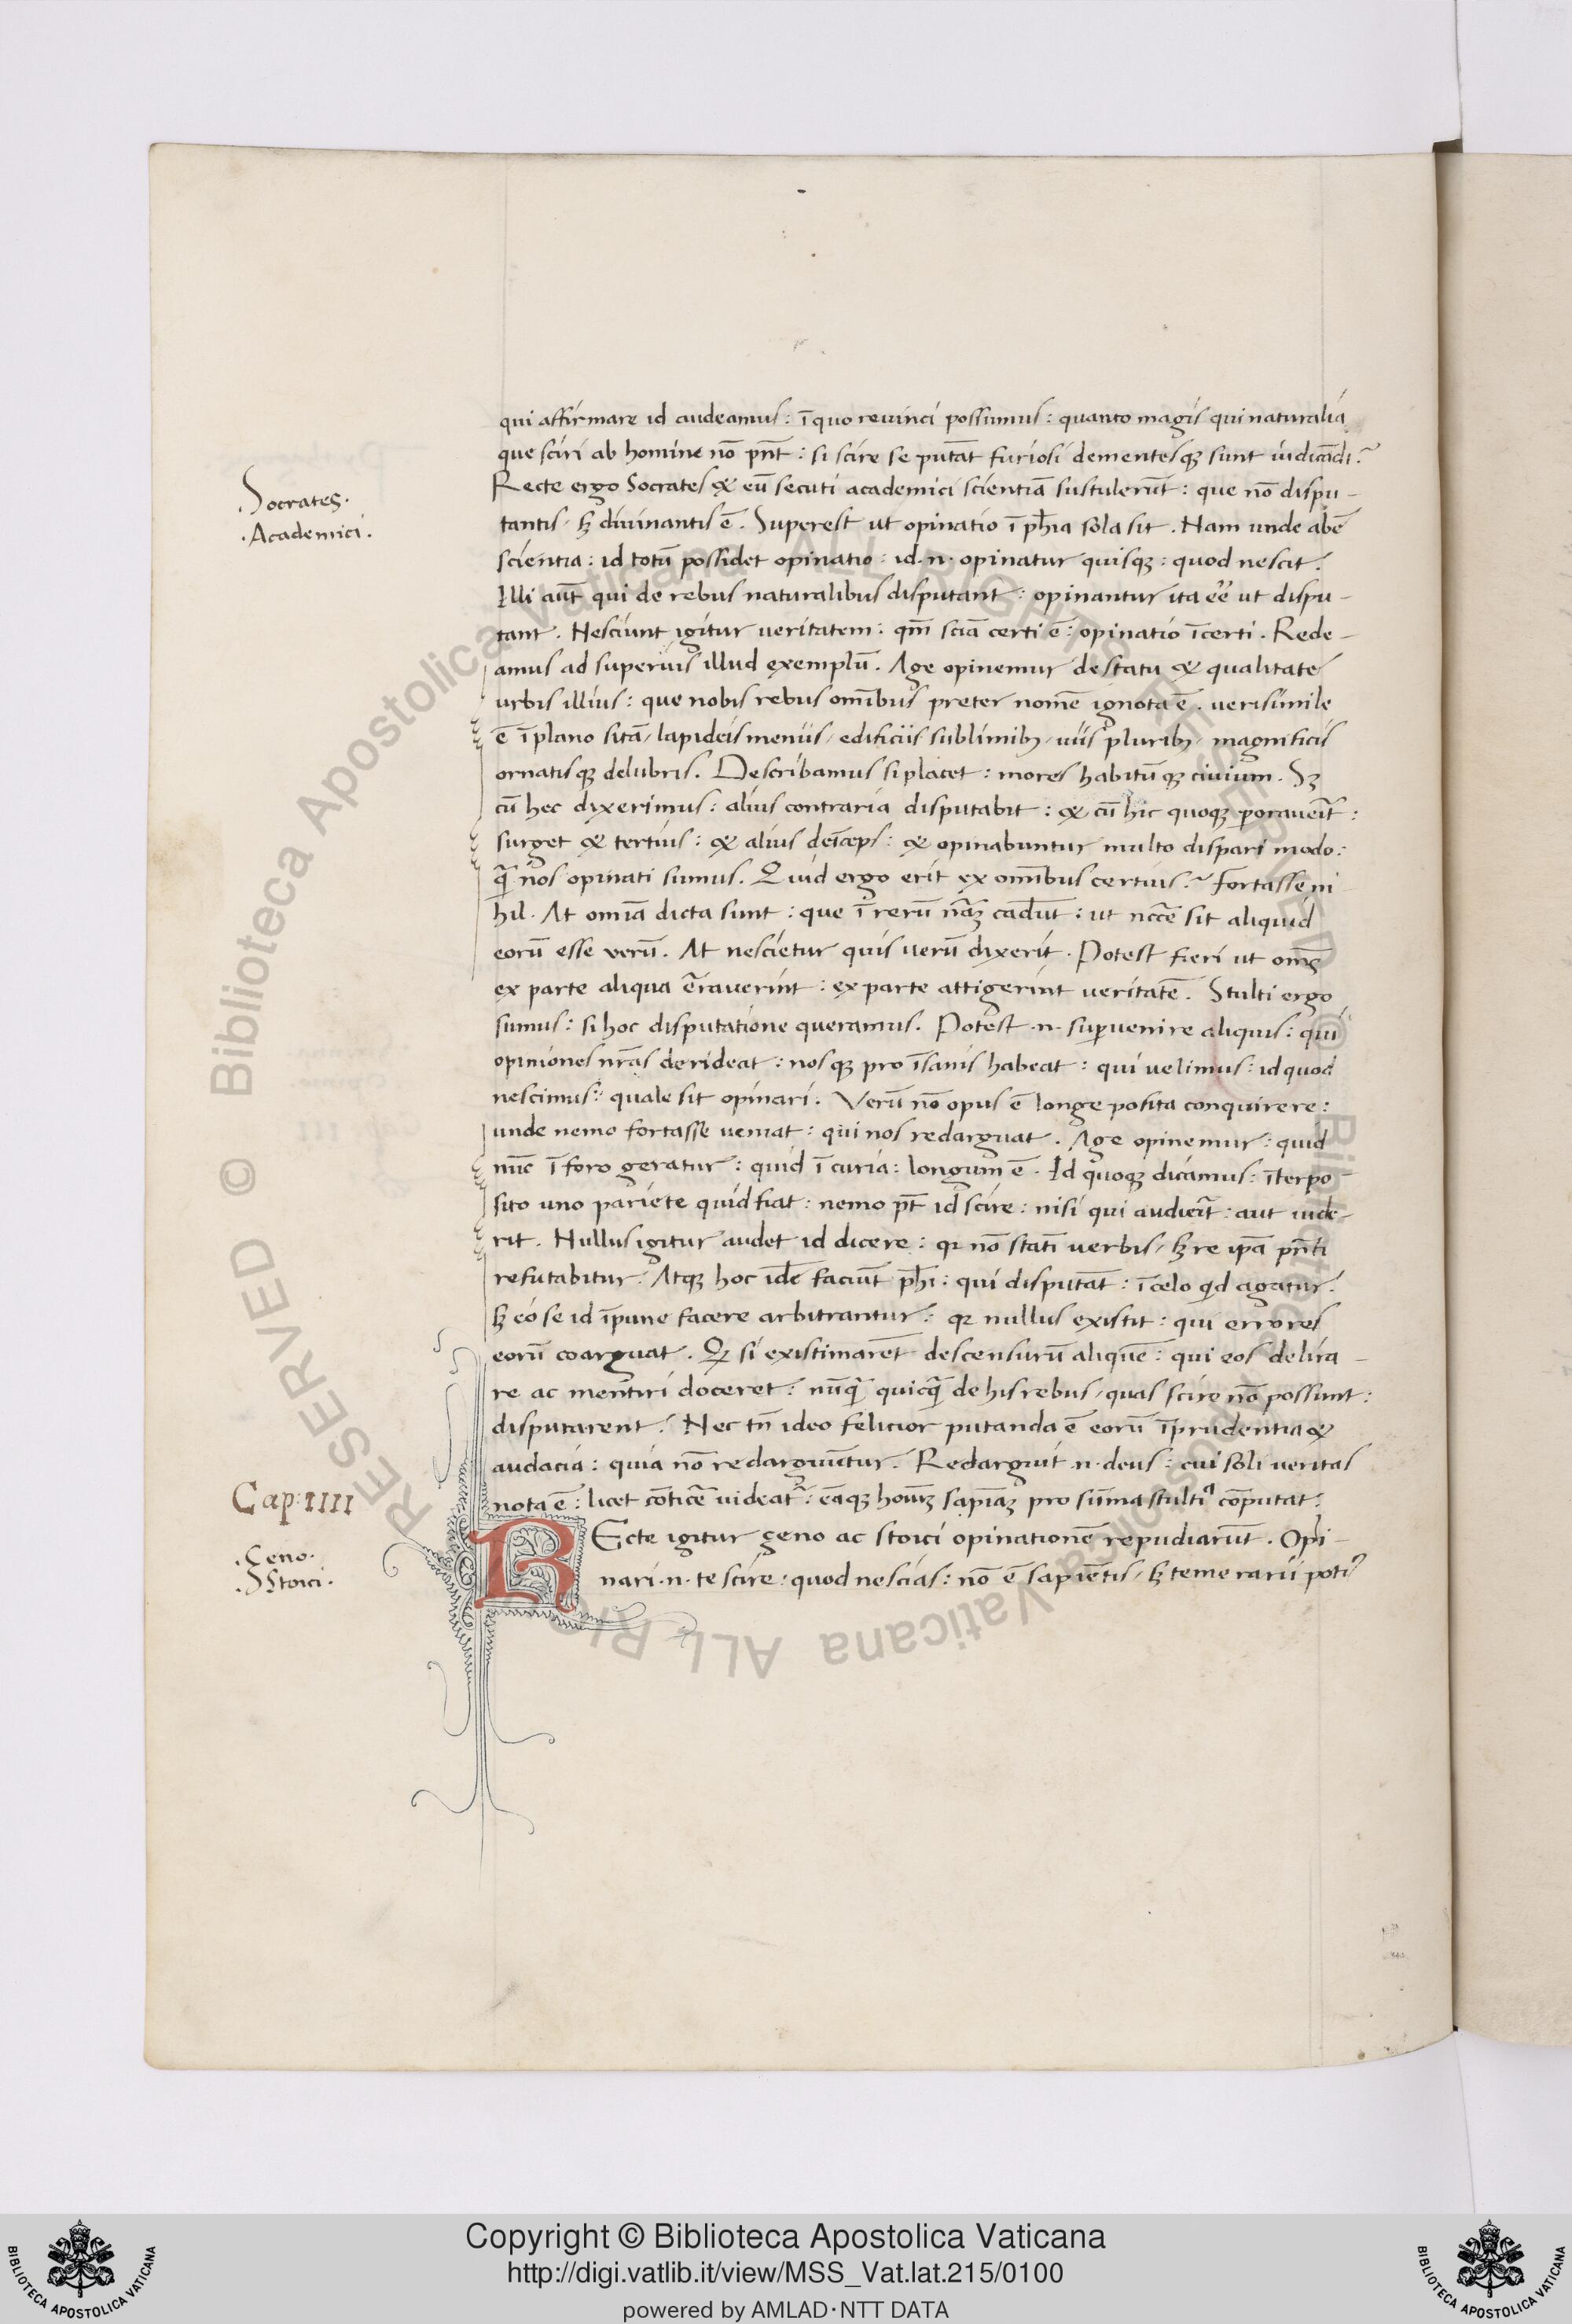 qui affirmare id audeamus: ī quo revinci possumus: quanto magis qui naturalia
que sciri ab homine nō pn̄t: si scire se putāt furiosi dementesqꝫ sunt iudicādi?
Socrates.
Academici.
Recte ergo Socrates & eū secuti academici scientiā sustulerūt: que nō dispu-
tantis, sꝫ divinantis ē. Superest ut opinatio ī ph̄ia sola sit. Nam unde abē
scientia: id totū possidet opinatio: id .n. opinatur quisqꝫ: quod nescit.
Illi aūt qui de rebus naturalibus disputant: opinantur ita eē ut dispu-
tant. Nesciunt igitur veritatem: qm̄ sciā certi ē: opinatio īcerti. Rede-
amus ad superius illud exemplū. Age opinemur de statu & qualitate
urbis illius: que nobis rebus omībus preter nomē ignota ē. verisimile
ē ī plano sitā, lapideis meniis, edificiis sublimibꝫ, viis pluribꝫ, magnificis
ornatisqꝫ delubris. Describamus si placet: mores habitūqꝫ civium. Sꝫ
cū hec dixerimus: alius contraria disputabit: & cū hic quoqꝫ ꝑoraverīt:
surget & tertius: & alius deīceps: & opinabuntur multo dispari modo:
q̄ nos opinati sumus. Quid ergo erit ex omībus certius? fortasse ni
hil. At omīa dicta sunt: que ī rerū nāꝫ cadūt: ut nccē sit aliquid
eorū esse verū. At nescietur quis verū dixerit. Potest fieri ut omēs
ex parte aliqua ērraverint: ex parte attigerint veritatē. Stulti ergo
sumus: si hoc disputatione queramus. Potest .n. suꝑvenire aliquis: qui
opiniones nr̄as derideat: nosqꝫ pro īsanis habeat: qui velimus: id quod
nescimus: quale sit opinari. Verū nō opus ē longe posita conquirere:
unde nemo fortasse veniat: qui nos redarguat. Age opinemur: quid
nūc ī foro geratur: quid ī curia: longum ē. Id quoqꝫ dicamus: īterpo
sito uno pariete quid fiat: nemo pt̄ id scire: nisi qui audierīt: aut vide-
rit. Nullus igitur audet id dicere: qꝛ nō statī verbis, sꝫ re ipā pn̄ti
refutabitur. Atqꝫ hoc idē faciūt ph̄i: qui disputāt: ī celo qͥd agatur.
sꝫ eo se id īpune facere arbitrantur: qꝛ nullus existit: qui errores
eorū coarguat. Qꝫ si existimarēt descensurū aliquē: qui eos delira-
re ac mentiri doceret: nūq̄ quicq̄ de his rebus, quas scire nō possunt:
disputarent. Nec tn̄ ideo felicior putanda ē eorū īprudentia &
audacia: quia nō redarguūtur. Redarguit .n. deus: cui soli veritas
nota ē: licet cōticē videatͬ: eāqꝫ hoīuꝫ sapīaꝫ pro sūma stultiͣ cōputat.
Cap: IIII
Ceno.
Stoici.
REcte igitur ceno ac stoici opinationē repudiarūt. Opi-
nari .n. te scire: quod nescias: nō ē sapiētis, sꝫ temerarii potiꝰ
Copyright © Biblioteca Apostolica Vaticana
http://digi.vatlib.it/view/MSS_Vat.lat.215/0100
powered by AMLAD·NTT DATA
BIBLIOTECA APOSTOLICA VATICANA
BIBLIOTECA APOSTOLICA VATICANA
© Biblioteca Apostolica Vaticana ALL RIGHTS RESERVED © Biblioteca Apostolica Vaticana ALL RIGHTS RESERVED